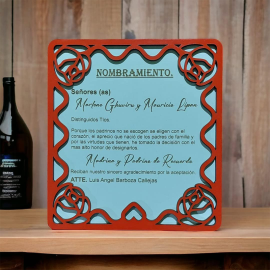 NOMBRAMIENTO.
Señores (as)
Marlene Ghaviru y Mauricio Lijon
Distinguidos Tíos.
Porque los padrinos no se escogen se eligen con el
corazón, el aprecio que nació de los padres de familia y
por las virtudes que tienen, he tomado la decisión con el
mas alto honor de designarlos
Madrina y Padrino de Recuerdo
Reciban nuestro sincero agradecimiento por la aceptación.
ATTE. Luis Angel Barboza Callejas